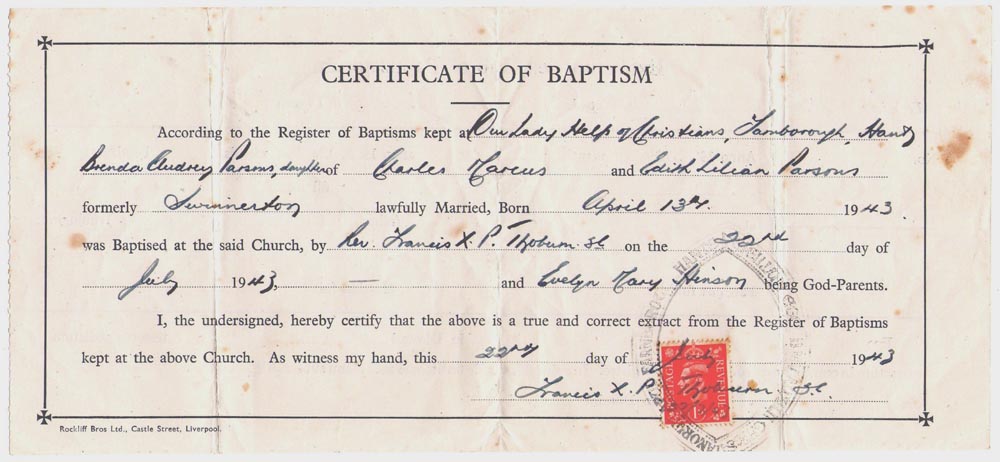 CERTIFICATE OF BAPTISM
According to the Register of Baptisms kept at Our Lady Help of Christians, Farnborough, Hants
Brenda Audrey Parsons, daughter of Charles Marcus and Edith Lilian Parsons
formerly Swinnerton lawfully Married, Born April 13th. 1943
was Baptised at the said Church, by Rev. Francis X. P. on the 22nd day of
July 1943, — and Evelyn Mary Hinson being God-Parents.
I, the undersigned, hereby certify that the above is a true and correct extract from the Register of Baptisms
kept at the above Church. As witness my hand, this 22nd day of July 1943
Francis X. P.
POSTAGE REVENUE
Rockliff Bros Ltd., Castle Street, Liverpool.